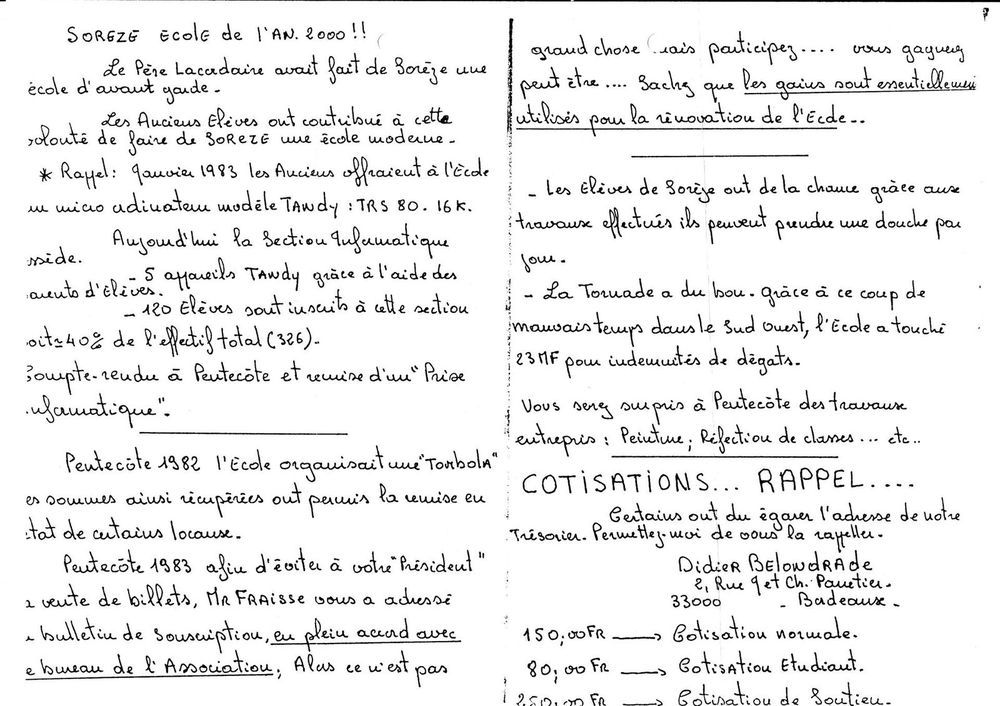 SOREZE ECOLE de l'AN. 2000!!
Le Père Lacordaire avait fait de Sorèze une
école d'avant garde.
Les Anciens Elèves ont contribué à cette
volonté de faire de SOREZE une école moderne.
* Rappel: Janvier 1983 les Anciens offraient à l'Ecole
un micro ordinateur modèle TANDY : TRS 80. 16K.
Aujourd'hui la Section Informatique
ssède.
- 5 appareils TANDY grâce à l'aide des
arents d'Elèves.
- 120 Elèves sont inscrits à cette section
oit ≃ 40% de l'effectif total (326).
Compte-rendu à Pentecôte et remise d'un "Prise
nformatique".
Pentecôte 1982 l'Ecole organisait une "TOMBOLA"
es sommes ainsi récupérées ont permis la remise en
état de certains locaux.
Pentecôte 1983 afin d'éviter à votre "Président"
a vente de billets, MR FRAISSE vous a adressé
n bulletin de souscription, en plein accord avec
e bureau de l'Association; Alors ce n'est pas
grand chose mais participez.... vous gagnerez
peut être.... Sachez que les gains sont essentiellement
utilisés pour la rénovation de l'Ecole..
- Les Elèves de Sorèze ont de la chance grâce aux
travaux effectués ils peuvent prendre une douche par
jour.
- La Tornade a du bon. Grâce à ce coup de
mauvais temps dans le Sud Ouest, l'Ecole a touché
23 MF pour indemnités de dégats.
Vous serez surpris à Pentecôte des travaux
entrepris : Peinture; Réfection de classes... etc..
COTISATIONS... RAPPEL....
Certains ont du égarer l'adresse de notre
Trésorier. Permettez-moi de vous la rappeller.
Didier BELONDRADE
2, Rue J et Ch. Panetier.
33000 - Bordeaux -
150,00 FR → Cotisation normale.
80,00 FR → Cotisation Etudiant.
250,00 FR → Cotisation de Soutien.